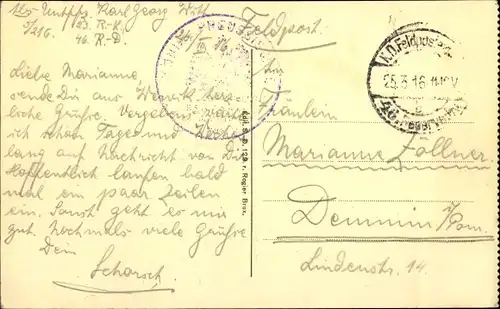 Karl Georg
5/216. 23. R.-K.
46. R.-D.
Feldpost.
K.D. Feldpostex
25.3.16 11-12V
46. Reserve-Div.
Liebe Marianne,
sende Dir aus Werwik herz-
liche Grüße. Vergebens warte
ich schon Tage und Wochen
lang auf Nachricht von Dir
Hoffentlich laufen bald
mal ein paar Zeilen
ein. Sonst geht es mir
gut. Nochmals viele Grüße
Dein
Schorsch
An
Fräulein
Marianne Zöllner
Demmin i/Pom.
Lindenstr. 14.